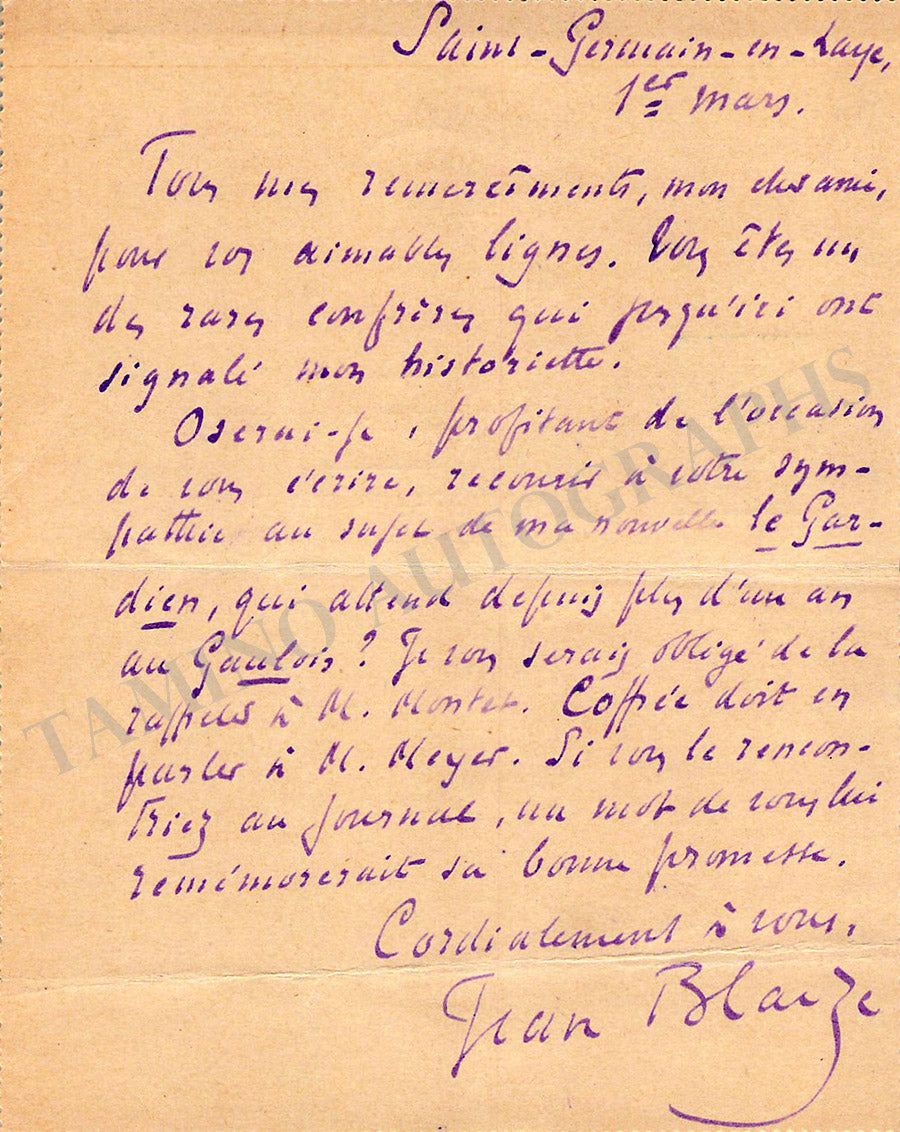 Saint-Germain-en-Laye,
1er mars.
Tous mes remerciments, mon cher ami,
pour vos aimables lignes. Vous êtes un
des rares confrères qui jusqu'ici ont
signalé mon historiette.
Oserai-je, profitant de l'occasion
de vous écrire, recourir à votre sym-
pathie au sujet de ma nouvelle le Gar-
dien, qui attend depuis plus d'un an
au Gaulois? Je vous serais obligé de la
rappeler à M. Montet. Coffrée doit en
parler à M. Meyer. Si vous le rencon-
triez au journal, un mot de vous lui
remémorerait sa bonne promesse.
Cordialement à vous,
Jean Blaize
TAMINO AUTOGRAPHS